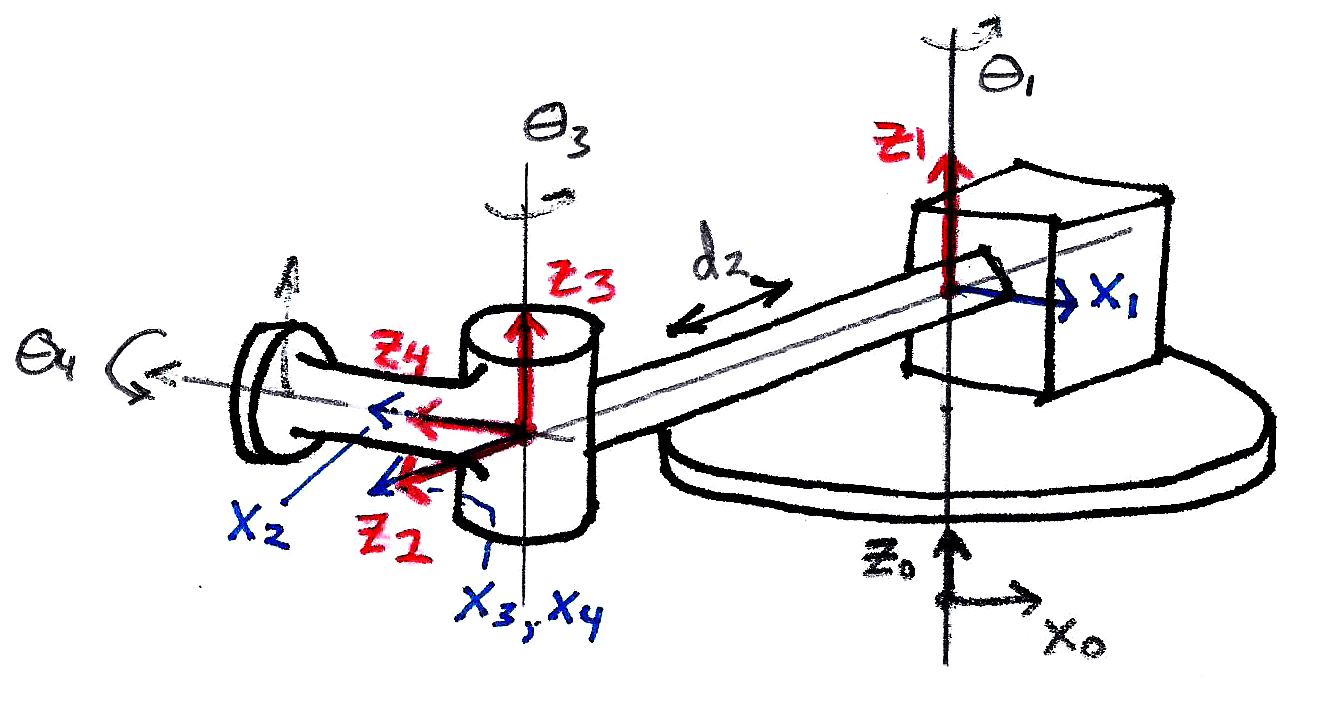 θ1
θ3
Z1
Z3
d2
X1
θ4
Z4
X2
Z2
Z0
X3, X4
X0